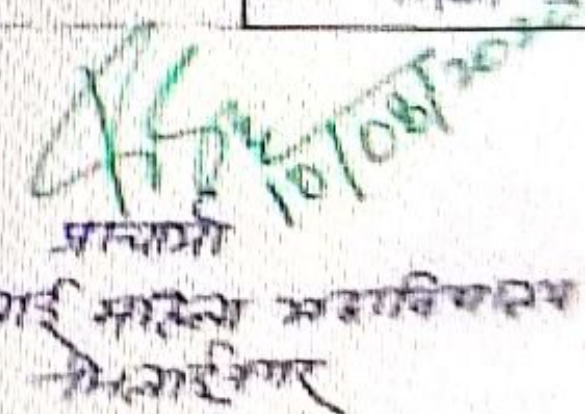 10/08/20
प्राचार्या
महिला महाविद्यालय
भिलाईनगर